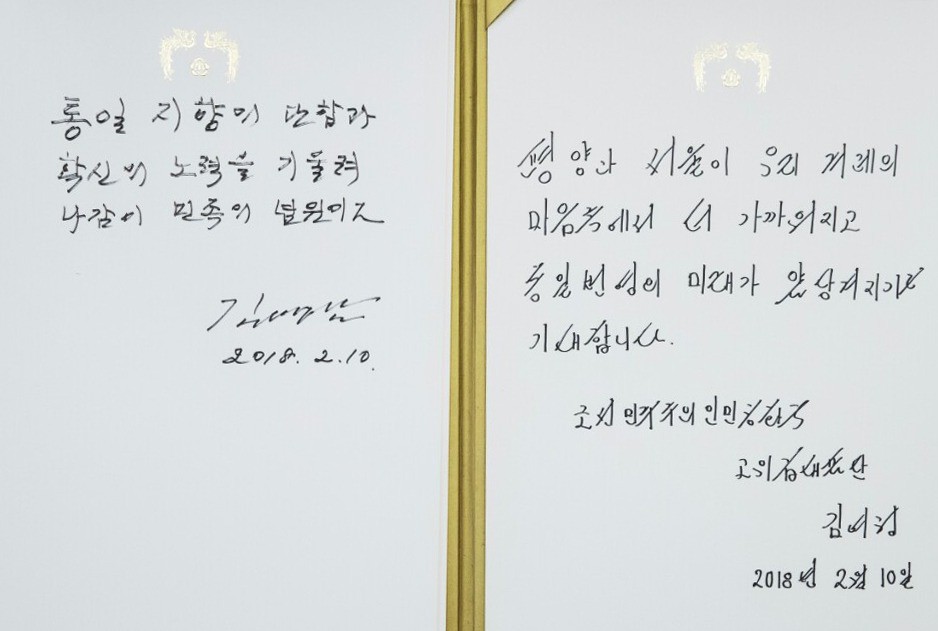 통일 지향의 단합과
확신의 노력을 기울려
나감이 민족의 념원이죠
김영남
2018. 2. 10.
평양과 서울이 우리 겨레의
마음속에서 더 가까워지고
통일번영의 미래가 앞당겨지기를
기대합니다.
조선민주주의인민공화국
고위급대표단
김여정
2018년 2월 10일